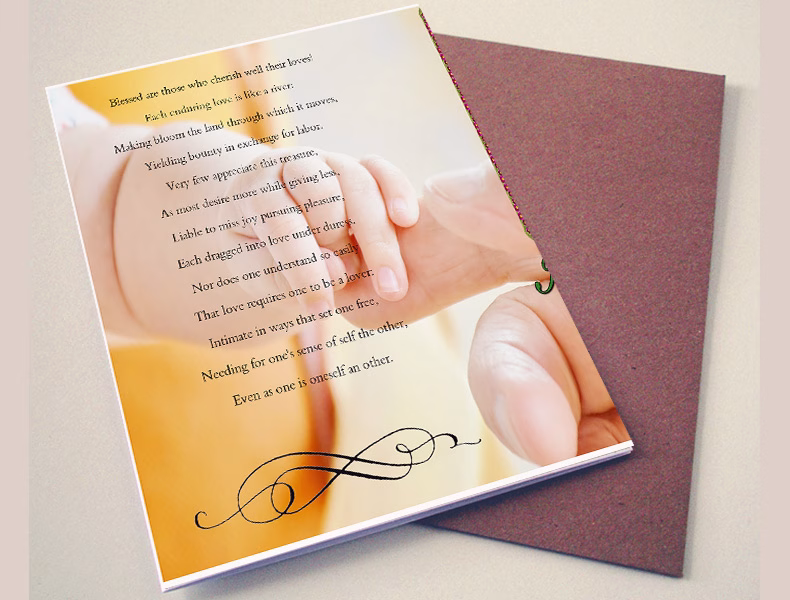 Blessed are those who cherish well their loves!
Each enduring love is like a river:
Making bloom the land through which it moves,
Yielding bounty in exchange for labor.
Very few appreciate this treasure,
As most desire more while giving less,
Liable to miss joy pursuing pleasure,
Each dragged into love under duress.
Nor does one understand so easily
That love requires one to be a lover:
Intimate in ways that set one free,
Needing for one's sense of self the other,
Even as one is oneself an other.